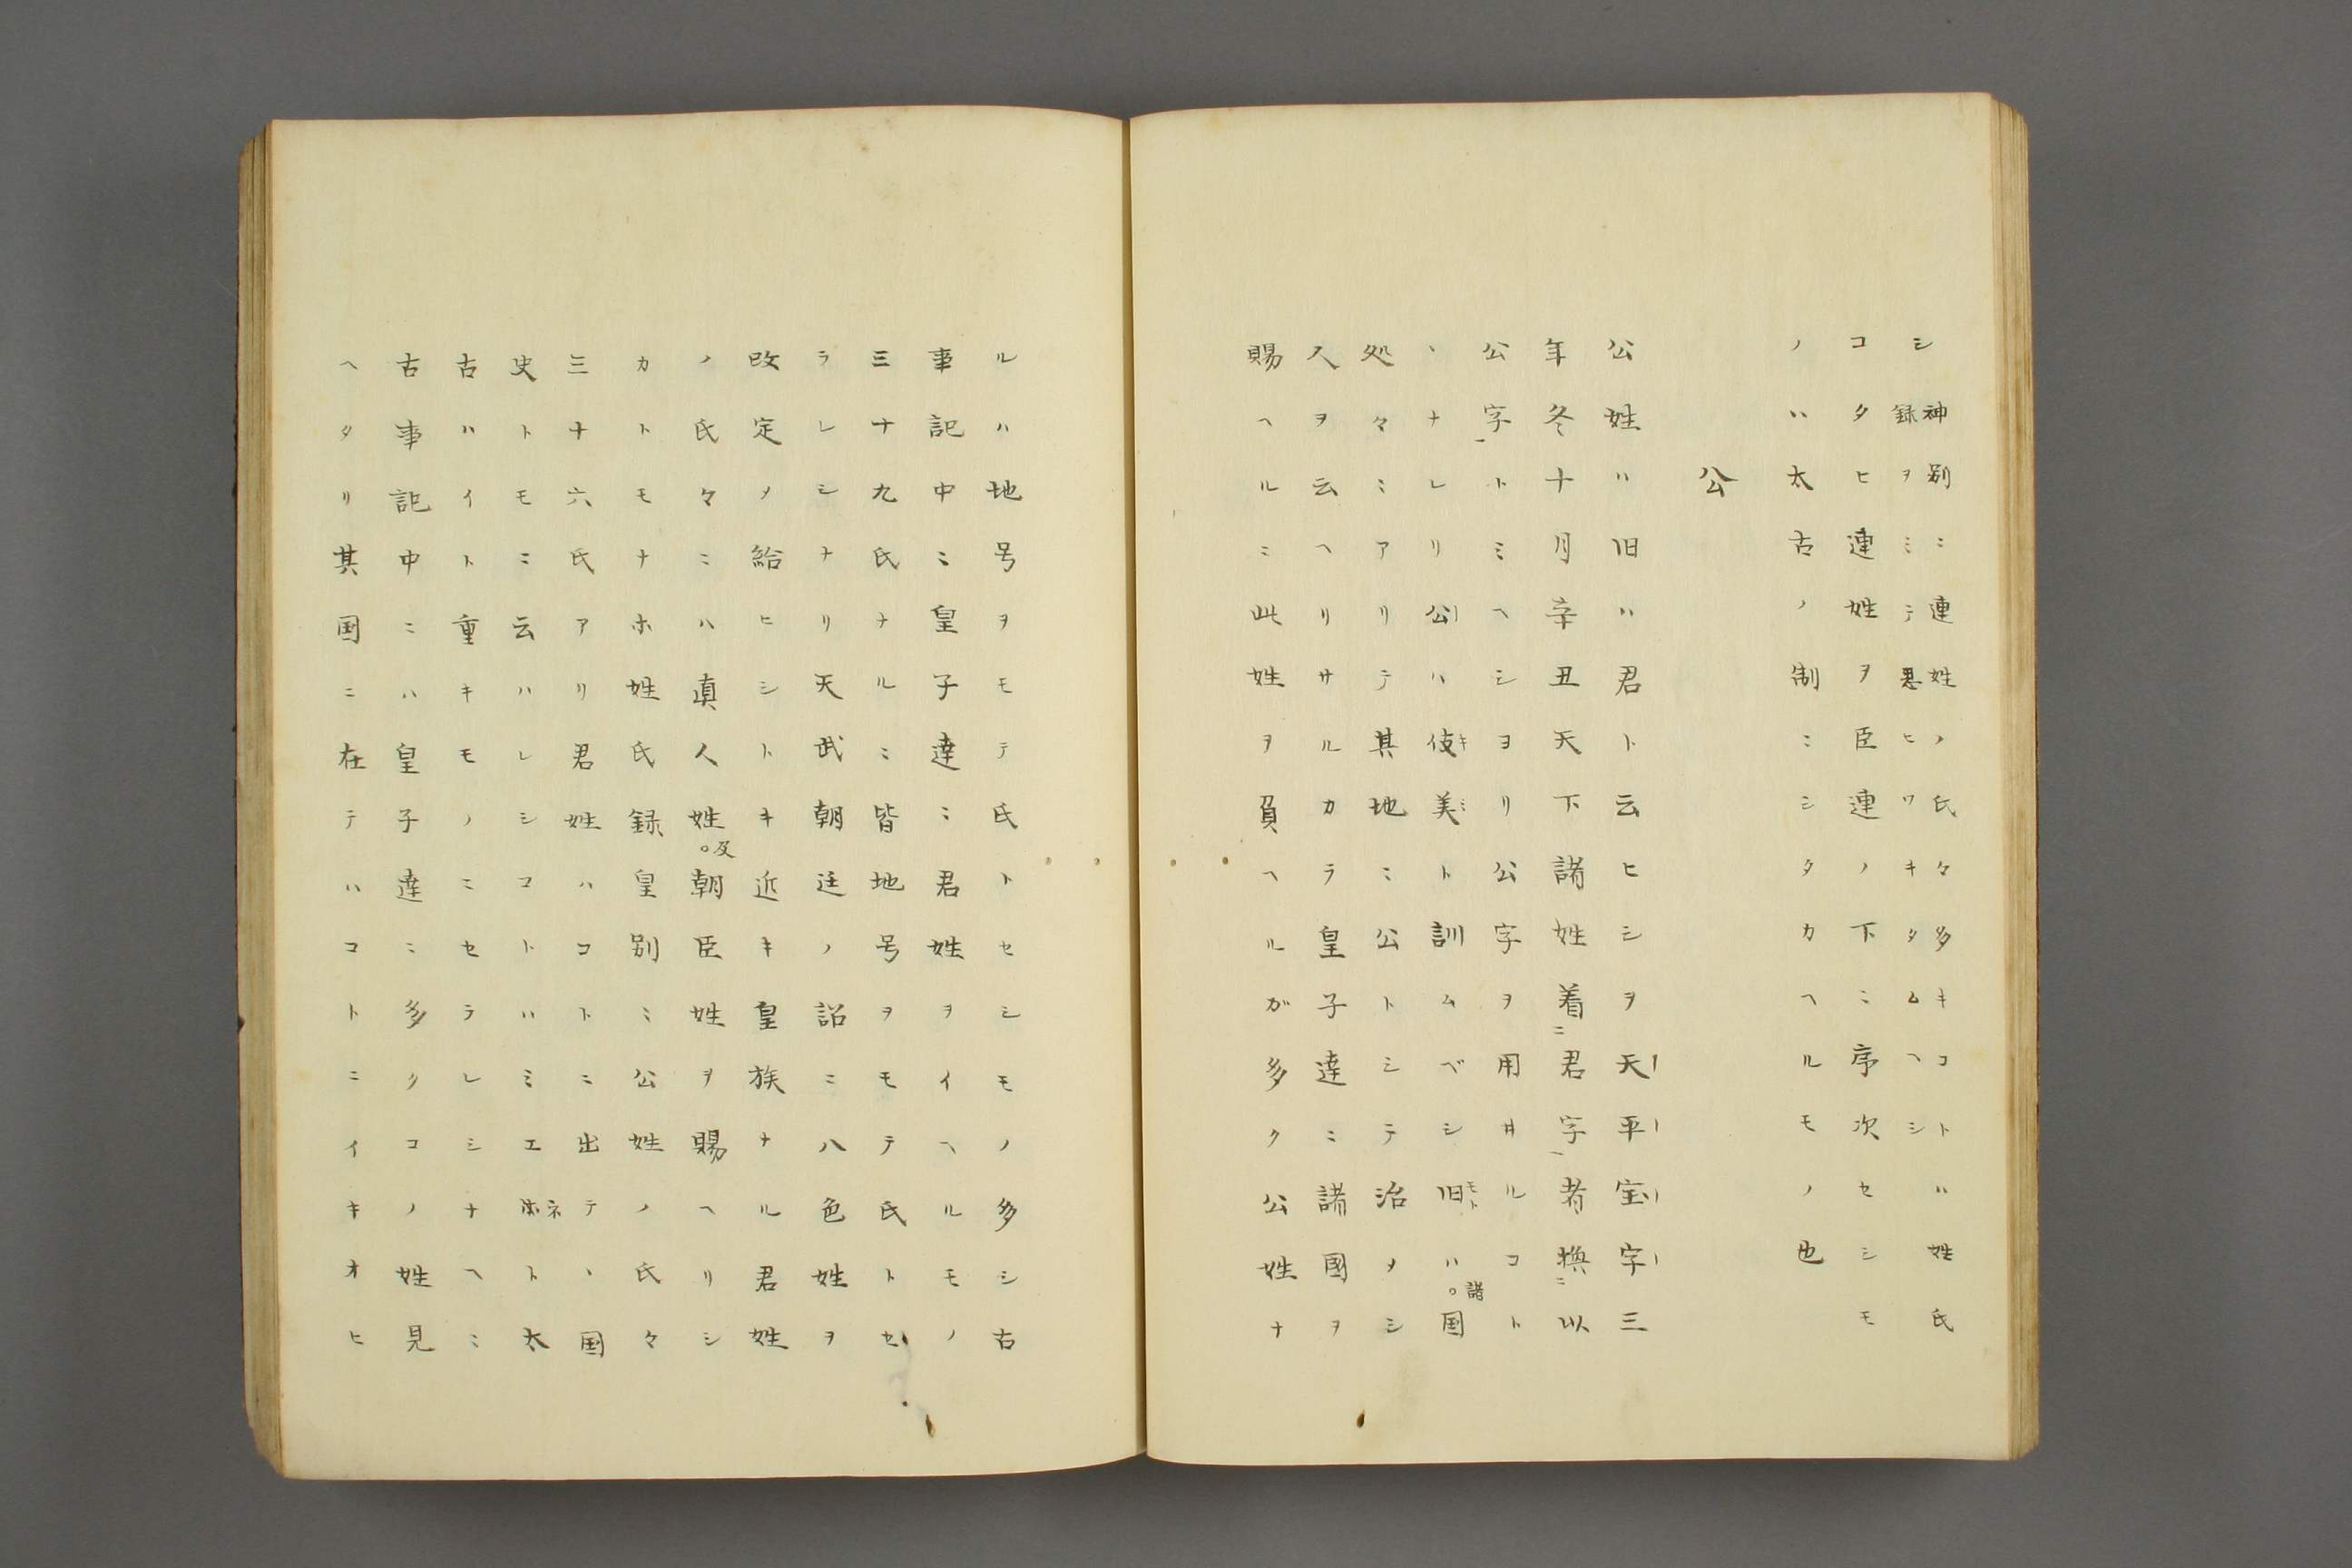 シ神別ニ連姓ノ氏々多キコトハ姓氏
録ヲミテ思ヒワキタムヘシ
コタヒ連姓ヲ臣連ノ下ニ序次セシモ
ノハ太古ノ制ニシタカヘルモノ也
公
公姓ハ旧ハ君ト云ヒシヲ天平宝字三
年冬十月辛丑天下諸姓着ニ君字一者換ニ以
公字一トミヘシヨリ公字ヲ用井ルコト
ヽナレリ公ハ伎キ美ミト訓ムベシ旧モトハ諸国
処々ミアリテ其地ミ公トシテ治メシ
人ヲ云ヘリサルカラ皇子達ミ諸國ヲ
賜ヘルミ此姓ヲ負ヘルガ多ク公姓ナ
ルハ地号ヲモテ氏トセシモノ多シ古
事記中ニ皇子達ミ君姓ヲイヘルモノ
三十九氏ナルミ皆地号ヲモテ氏トセ
ラレシナリ天武朝廷ノ詔ニ八色姓ヲ
改定メ給ヒシトキ近キ皇族ナル君姓
ノ氏々ニハ真人姓及朝臣姓ヲ賜ヘリシ
カトモナホ姓氏録皇別ミ公姓ノ氏々
三十六氏アリ君姓ハコトニ出テヽ国
史トモニ云ハレシコトハミエネト太
古ハイト重キモノニセラレシナヘミ
古事記中ニハ皇子達ニ多クコノ姓見
ヘタリ其国ニ在テハコトニイキオヒ